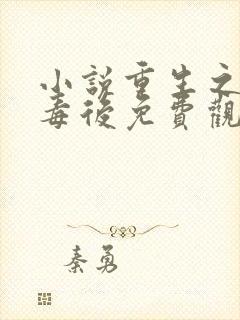 小說重生之
毒後免費觀
秦勇